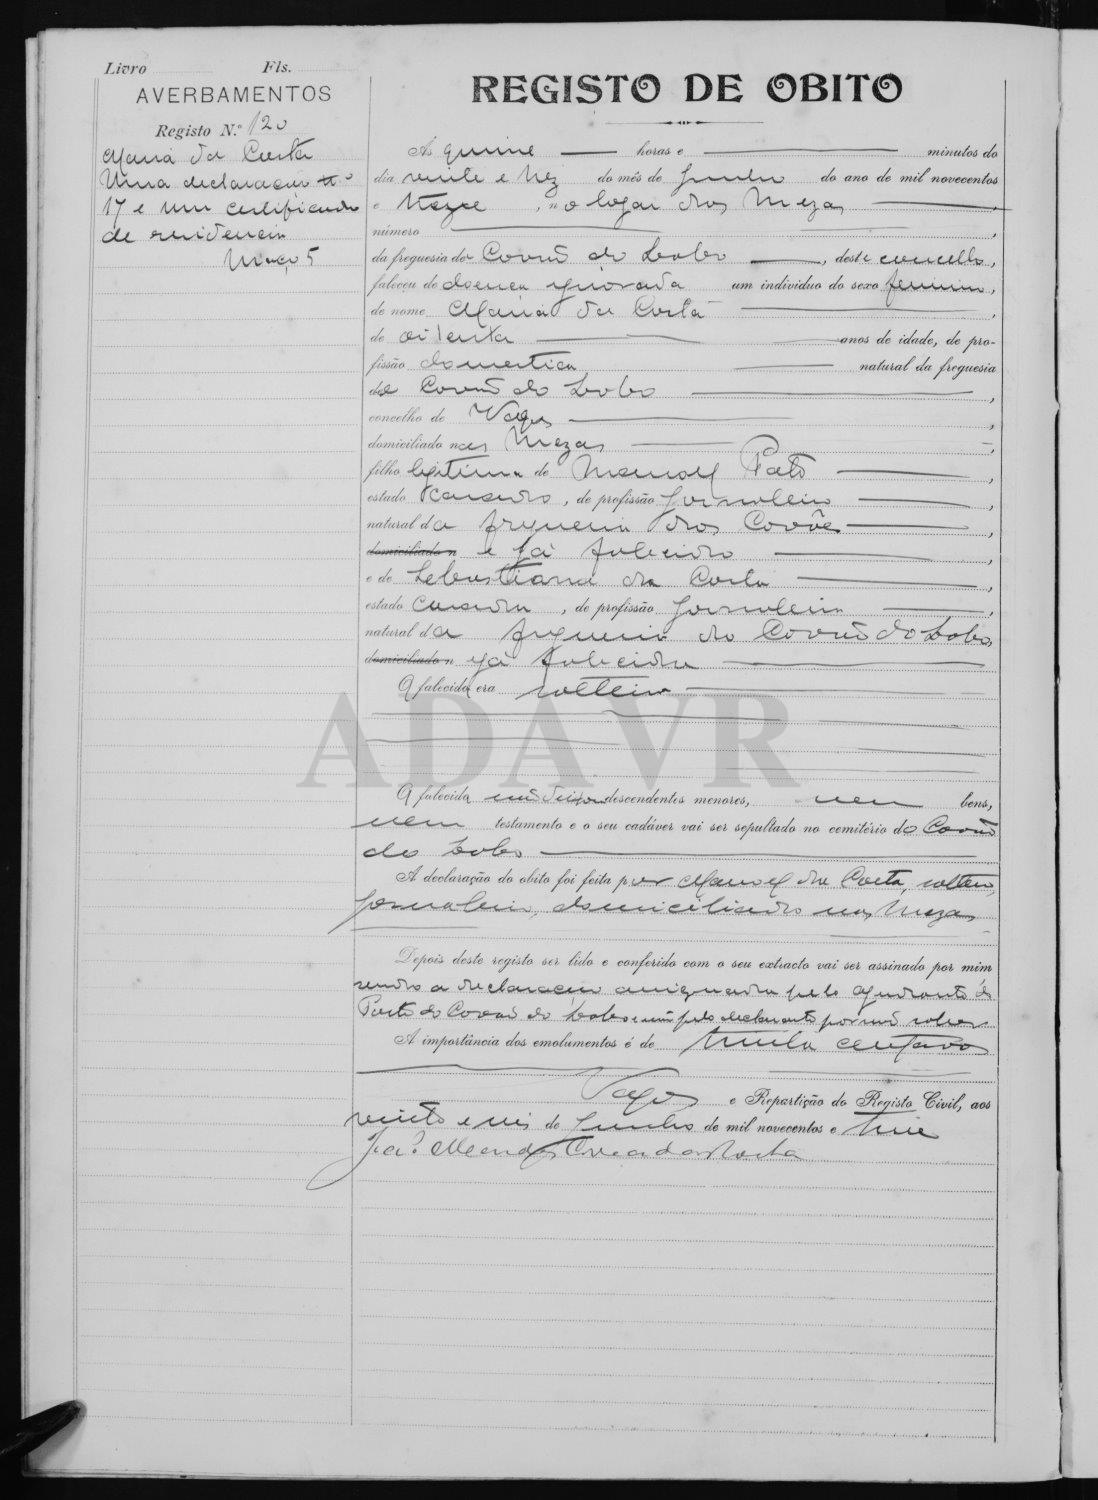 Livro Fls.
AVERBAMENTOS
Registo N.º 120
Maria da Costa
Uma declaração n.º
17 e um certificado
de residencia
Maço 5
REGISTO DE OBITO
Ás quinze horas e minutos do
dia vinte e do mês de Junho do ano de mil novecentos
e treze, no logar das Mezas
número
da freguesia de Covão do Lobo, deste concelho,
faleceu de doença ignorada um individuo do sexo feminino,
de nome Maria da Costa
de oitenta anos de idade, de pro-
fissão domestica natural da freguesia
de Covão do Lobo
concelho de Vagos
domiciliado nas Mezas
filho legitima de Manoel Pato
estado casado, de profissão Jornaleiro
natural da freguesia dos Covões
domiciliado n e já falecido
e de Sebastiana da Costa
estado casada, de profissão Jornaleira
natural da freguesia do Covão do Lobo,
domiciliado n já falecida
A falecida era solteira
ADAVR
A falecida não deixou descendentes menores, nem bens,
nem testamento e o seu cadáver vai ser sepultado no cemitério do Covão
do Lobo
A declaração do obito foi feita por Manoel da Costa, solteiro,
Jornaleiro, domiciliado nas Mezas
Depois deste registo ser lido e conferido com o seu extracto vai ser assinado por mim
sendo a declaração assignada pelo ajudante do
Posto do Covão do Lobo e não pelo declarante por não saber
A importância dos emolumentos é de trinta centavos
Vagos e Repartição do Registo Civil, aos
vinte e seis de Junho de mil novecentos e treze
Mendes Correia da Rocha